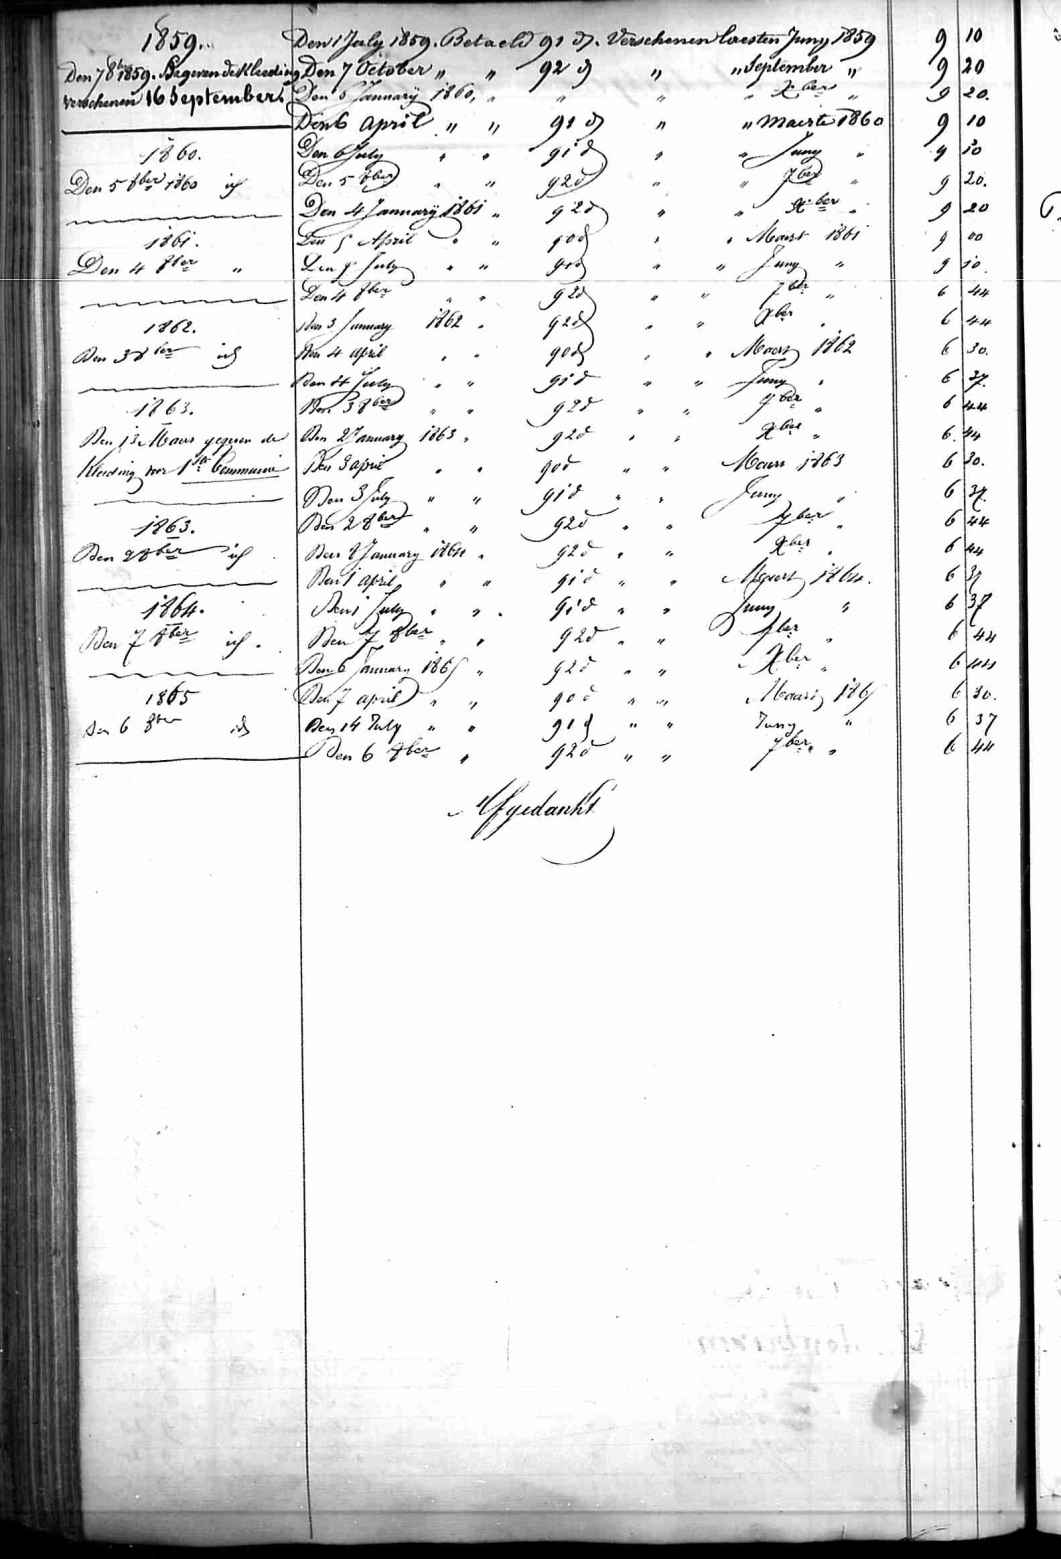 1859.
Den 1 July 1859. Betaeld 91 d. Verschenen laesten Juny 1859 9 10
Den 7 8ber 1859. Gegeven de Kleeding
verschenen 16 September.
Den 7 October " " 92 d " " September " 9 20
Den 6 January 1860 " " " " Xber " 9 20.
Den 6 April " " 91 d " " Maerte 1860 9 10
1860.
Den 6 July " " 91 d " " Juny " 9 10
Den 5 8ber 1860 id
Den 5 8ber " " 92 d " " 7ber " 9 20.
Den 4 January 1861 " 92 d " " Xber " 9 20
1861.
Den 5 April " " 90 d " " Maert 1861 9 00
Den 4 8ber "
Den 5 July " " 91 d " " Juny " 9 10.
Den 4 8ber " " 92 d " " 7ber " 6 44
1862.
Den 3 January 1862 " 92 d " " Xber " 6 44
Den 3 8ber id
Den 4 april " " 90 d " " Maert 1862 6 30.
Den 4 July " " 91 d " " Juny " 6 37.
1863.
Den 3 8ber " " 92 d " " 7ber " 6 44
Den 13 Maers gegeven de
Kleeding voor 1ste Communie
Den 2 January 1863 " 92 d " " Xber " 6. 44
Den 3 april " " 90 d " " Maers 1863 6 30.
Den 3 July " " 91 d " " Juny " 6 37.
1863.
Den 2 8ber " " 92 d " " 7ber " 6 44
Den 2 8ber id
Den 2 January 1864 " 92 d " " Xber " 6 44
Den 1 april " " 91 d " " Maert 1864. 6 37
1864.
Den 1 July " " 91 d " " Juny " 6 37
Den 7 8ber id.
Den 7 8ber " " 92 d " " 7ber " 6 44
Den 6 January 1865 " 92 d " " Xber " 6 44
1865
Den 7 april " " 90 d " " Maart 1865 6 30.
Den 6 8ber id
Den 14 July " " 91 d " " Juny " 6 37
Den 6 8ber " 92 d " " 7ber " " 6 44
Afgedankt